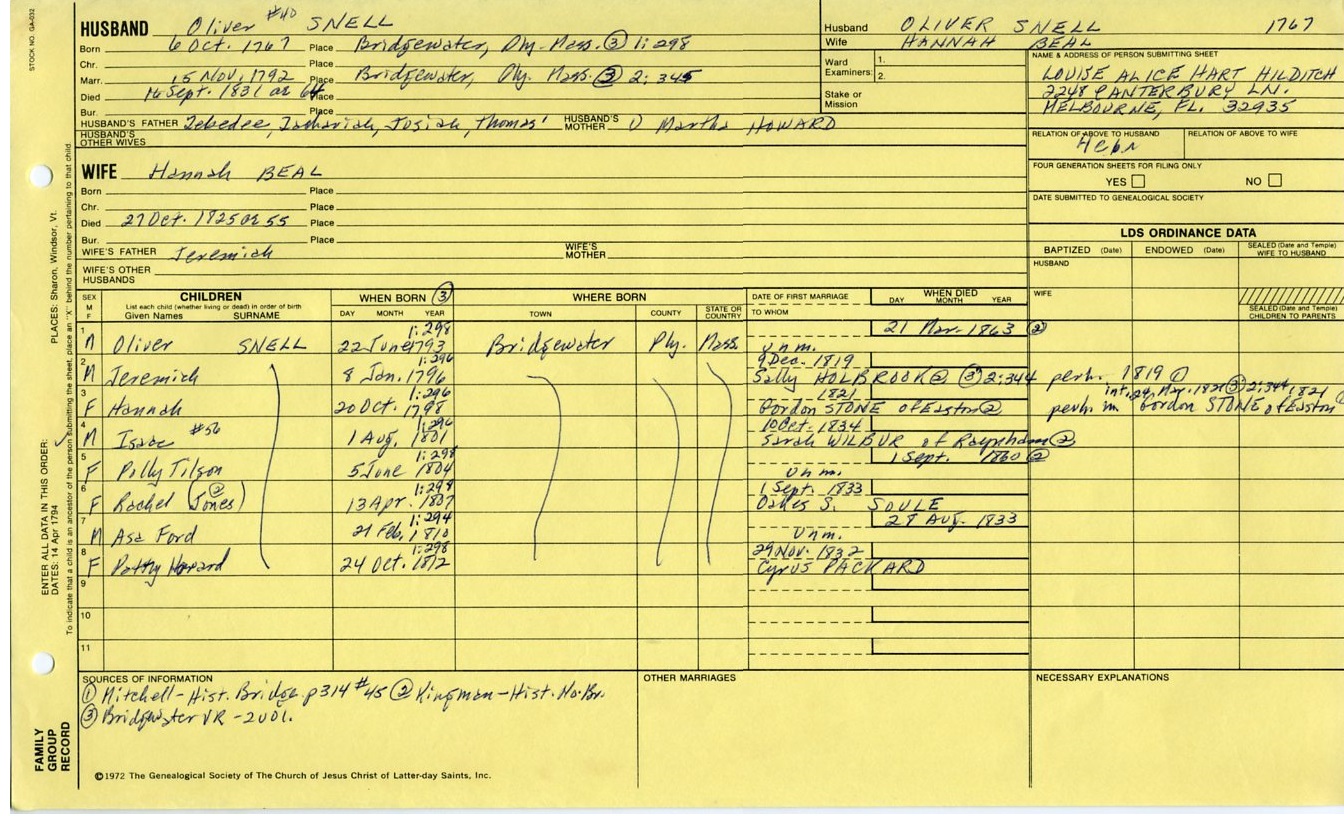 STOCK NO. GA-032
HUSBAND Oliver #40 SNELL
Born 6 Oct. 1767 Place Bridgewater, Ply. Mass. ③ 1:298
Chr. Place
Marr. 15 Nov. 1792 Place Bridgewater, Ply. Mass. ③ 2:345
Died 14 Sept. 1831 or 64 Place
Bur. Place
HUSBAND'S FATHER Zebedee, Zachariah, Josiah, Thomas' HUSBAND'S MOTHER Martha HOWARD
HUSBAND'S OTHER WIVES
Husband OLIVER SNELL 1767
Wife HANNAH BEAL
Ward Examiners: 1.
2.
Stake or Mission
NAME & ADDRESS OF PERSON SUBMITTING SHEET
LOUISE ALICE HART HILDITCH
2248 CANTERBURY LN.
MELBOURNE, FL. 32935
RELATION OF ABOVE TO HUSBAND RELATION OF ABOVE TO WIFE
FOUR GENERATION SHEETS FOR FILING ONLY
YES NO
DATE SUBMITTED TO GENEALOGICAL SOCIETY
WIFE Hannah BEAL
Born Place
Chr. Place
Died 27 Oct. 1825 or 55 Place
Bur. Place
WIFE'S FATHER Jeremiah WIFE'S MOTHER
WIFE'S OTHER HUSBANDS
LDS ORDINANCE DATA
BAPTIZED (Date) ENDOWED (Date) SEALED (Date and Temple) WIFE TO HUSBAND
HUSBAND
WIFE
SEALED (Date and Temple) CHILDREN TO PARENTS
SEX M F CHILDREN WHEN BORN ③ WHERE BORN DATE OF FIRST MARRIAGE WHEN DIED
List each child (whether living or dead) in order of birth
Given Names SURNAME DAY MONTH YEAR TOWN COUNTY STATE OR COUNTRY TO WHOM DAY MONTH YEAR
1 M Oliver SNELL 22 June 1793 1:298 Bridgewater Ply. Mass. unm. 21 Mar. 1863 ②
2 M Jeremiah 8 Jan. 1796 1:296 9 Dec. 1819 Sally HOLBROOK ② ③ 2:344 perh. 1819 ①
3 F Hannah 20 Oct. 1798 1:296 1821 Gordon STONE of Easton ② int. 24 Mar. 1821 ③ 2:344 1821 perh. m Gordon STONE of Easton
4 M Isaac #56 1 Aug. 1801 1:296 10 Oct. 1834 Sarah WILBUR of Raynham ②
5 F Polly Tilson 5 June 1804 1:298 unm. 1 Sept. 1860 ②
6 F Rachel (Jones) ② 13 Apr. 1807 1:298 1 Sept. 1833 Oakes S. SOULE
7 M Asa Ford 21 Feb. 1810 1:294 unm. 28 Aug. 1833
8 F Patty Howard 24 Oct. 1812 1:298 29 Nov. 1832 Cyrus PACKARD
9
10
11
SOURCES OF INFORMATION
① Mitchell-Hist. Bridge. p314 #45 ② Kingman-Hist. No. Br.
③ Bridgewater VR - 2 vol.
OTHER MARRIAGES
NECESSARY EXPLANATIONS
©1972 The Genealogical Society of The Church of Jesus Christ of Latter-day Saints, Inc.
FAMILY GROUP RECORD
ENTER ALL DATA IN THIS ORDER:
DATES: 14 Apr 1794
PLACES: Sharon, Windsor, Vt.
To indicate that a child is an ancestor of the person submitting the sheet, place an "X" behind the number pertaining to that child.